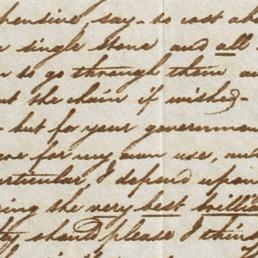 hensive, say - to cost abo
e single stone and all
n to go through them, a
ut the chain if wished -
- but for your governmen
one for my own use, and
articular, I depend upon
ing the very best brill
ty should please I think